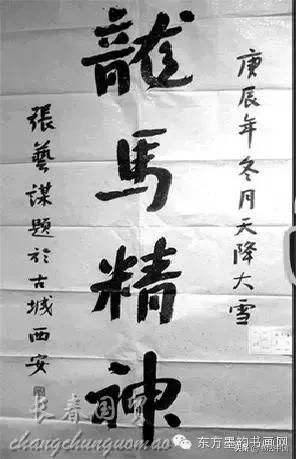 庚辰年冬月天降大雪
龍馬精神
張藝謀題於古城西安
长春国贸
changchunguomao
东方墨韵书画网